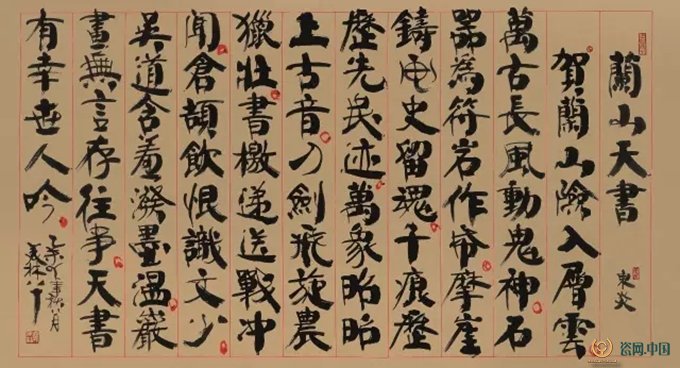 蘭山天書
賀蘭山險入層雲
萬古長風動鬼神石
器為符岩作帋摩崖
鑄史留魂千痕歷
歷先民迹萬象昭昭
上古音刀劍飛旋農
獵壯書檄遞送戰冲
聞倉頡飲恨識文少
吳道含羞潑墨溫巖
畫無言存往事天書
有幸世人吟
瓷网.中国